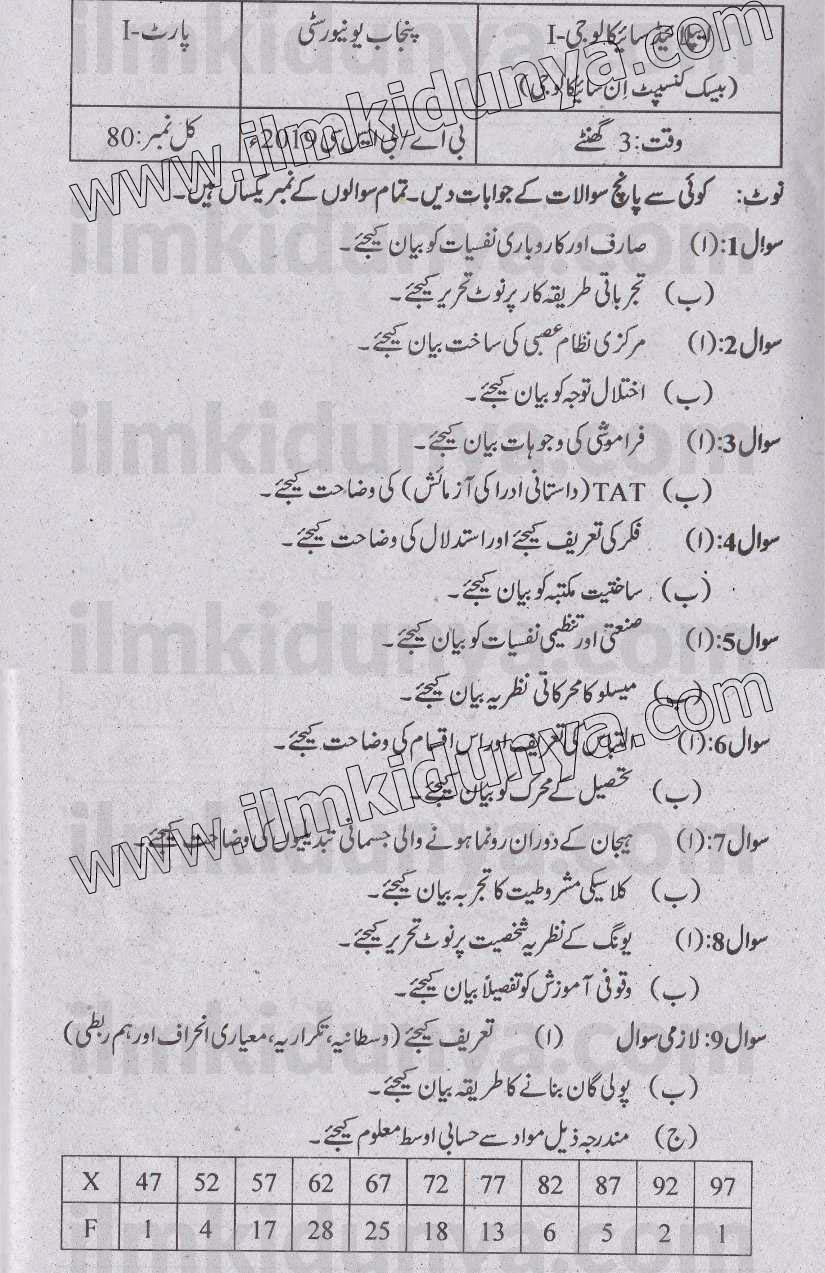 اپلائیڈ سائیکالوجی-I پنجاب یونیورسٹی پارٹ-I
(بیسک کنسپٹ اِن سائیکالوجی)
وقت: 3 گھنٹے بی اے/بی ایس سی 2019ء کل نمبر: 80
نوٹ: کوئی سے پانچ سوالات کے جوابات دیں۔ تمام سوالوں کے نمبر یکساں ہیں۔
سوال 1: (ا) صارف اور کاروباری نفسیات کو بیان کیجئے۔
(ب) تجرباتی طریقہ کار پر نوٹ تحریر کیجئے۔
سوال 2: (ا) مرکزی نظام عصبی کی ساخت بیان کیجئے۔
(ب) اختلال توجہ کو بیان کیجئے۔
سوال 3: (ا) فراموشی کی وجوہات بیان کیجئے۔
(ب) TAT (داستانی ادراکی آزمائش) کی وضاحت کیجئے۔
سوال 4: (ا) فکر کی تعریف کیجئے اور استدلال کی وضاحت کیجئے۔
(ب) ساختیت مکتبہ کو بیان کیجئے۔
سوال 5: (ا) صنعتی اور تنظیمی نفسیات کو بیان کیجئے۔
(ب) میسلو کا محرکاتی نظریہ بیان کیجئے۔
سوال 6: (ا) التباس کی تعریف اور اس اقسام کی وضاحت کیجئے۔
(ب) تحصیل کے محرک کو بیان کیجئے۔
سوال 7: (ا) ہیجان کے دوران رونما ہونے والی جسمانی تبدیلیوں کی وضاحت کیجئے۔
(ب) کلاسیکی مشروطیت کا تجربہ بیان کیجئے۔
سوال 8: (ا) یونگ کے نظریہ شخصیت پر نوٹ تحریر کیجئے۔
(ب) وقوفی آموزش کو تفصیلاً بیان کیجئے۔
سوال 9: لازمی سوال (ا) تعریف کیجئے (وسطانیہ، تکراریہ، معیاری انحراف اور ہم ربطی)
(ب) پولی گان بنانے کا طریقہ بیان کیجئے۔
(ج) مندرجہ ذیل مواد سے حسابی اوسط معلوم کیجئے۔
X 47 52 57 62 67 72 77 82 87 92 97
F 1 4 17 28 25 18 13 6 5 2 1
www.ilmkidunya.com
www.ilmkidunya.com
ilmkidunya.com
ilmkidunya.com
ilmkidunya.com
ilmkidunya.com
ilmkidunya.com
ilmkidunya.com